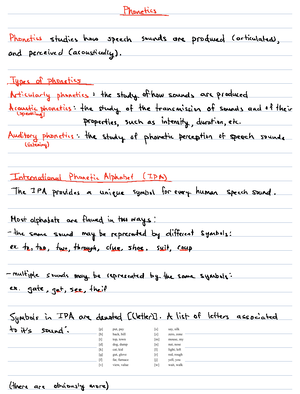 Phonetics
Phonetics studies how speech sounds are produced (articulated),
and perceived (acoustically).
Types of phonetics
Articulatory phonetics: the study of how sounds are produced
Acoustic phonetics: the study of the transmission of sounds and of their
(speaking)
properties, such as intensity, duration, etc.
Auditory phonetics: the study of phonetic perception of speech sounds
(listening)
International Phonetic Alphabet (IPA)
The IPA provides a unique symbol for every human speech sound.
Most alphabets are flawed in two ways:
-the same sound may be represented by different symbols:
ex. to, too, two, through, clue, shoe, suit, coup
-multiple sounds may be represented by the same symbols:
ex. gate, get, see, their
Symbols in IPA are denoted [(letter)]. A list of letters associated
to it's sound:
(there are obviously more)